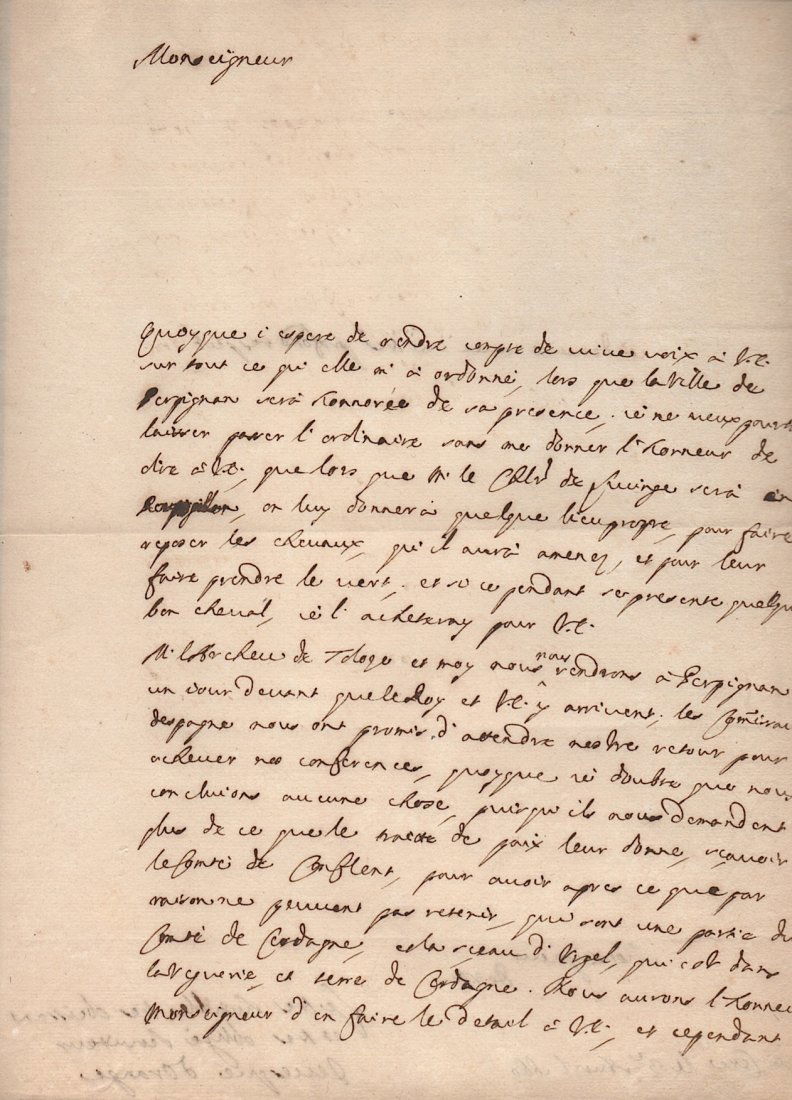 Monseigneur
Quoyque i espere de rendre compte de vive voix à V.E.
sur tout ce qu elle m à ordonné, lors que la Ville de
Perpignan serà honnorée de sa presence, ie ne veux pourtt
laisser passer l ordinaire sans me donner l honneur de
dire à V.E. que lors que M. le de serà en
on luy donnerà quelque lieu propre, pour faire
reposer les chevaux, qu il aurà amenez, et pour leur
faire prendre le vert, et si ce pendant se presente quelqu
bon cheval, ie l acheteray pour V.E.
M. de et moy nous nous rendrons à Perpignan
un iour devant que le Roy et V.E. y arrivent, les
despagne nous ont promis d attendre nostre retour pour
achever nos conferences, quoyque ie doubte que nous
concluions aucune chose, puisqu ils nous demandent
plus de ce que le traitté de paix leur donne, sçavoir
le Comté de Conflent, pour avoir apres ce que par
raison ne peuvent pas retenir, qui sont une partie du
Comté de Cerdagne, et la d Urgel, qui est dans
la Viguerie, et terre de Cerdagne. Nous aurons l honneu
Monseigneur d en faire le detail à V.E. et cependant